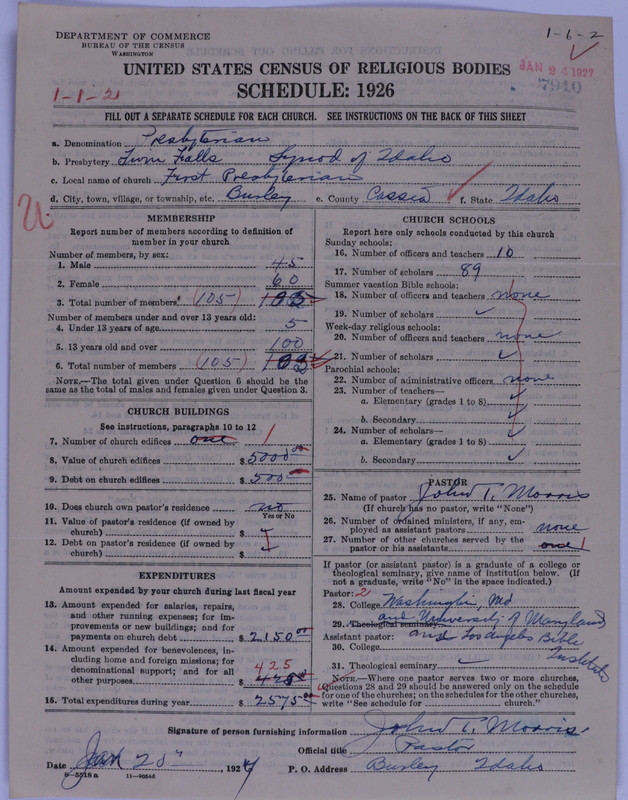 DEPARTMENT OF COMMERCE
BUREAU OF THE CENSUS
WASHINGTON
1-6-2
UNITED STATES CENSUS OF RELIGIOUS BODIES
JAN 24 1927
7910
1-1-2
SCHEDULE: 1926
FILL OUT A SEPARATE SCHEDULE FOR EACH CHURCH. SEE INSTRUCTIONS ON THE BACK OF THIS SHEET
a. Denomination Presbyterian
b. Presbytery Twin Falls Synod of Idaho
c. Local name of church First Presbyterian
d. City, town, village, or township, etc. Burley e. County Cassia f. State Idaho
U
MEMBERSHIP
Report number of members according to definition of
member in your church
Number of members, by sex:
1. Male 45
2. Female 60
3. Total number of members (105) 105
Number of members under and over 13 years old:
4. Under 13 years of age 5
5. 13 years old and over 100
6. Total number of members (105) 105
NOTE.—The total given under Question 6 should be
same as the total of males and females given under Question 3.
CHURCH BUILDINGS
See instructions, paragraphs 10 to 12
7. Number of church edifices one 1
8. Value of church edifices $5000.00
9. Debt on church edifices $500.00
10. Does church own pastor's residence no
Yes or No
11. Value of pastor's residence (if owned by
church) $
12. Debt on pastor's residence (if owned by
church) $
EXPENDITURES
Amount expended by your church during last fiscal year
13. Amount expended for salaries, repairs,
and other running expenses; for im-
provements or new buildings; and for
payments on church debt $2150.00
14. Amount expended for benevolences, in-
cluding home and foreign missions; for
denominational support; and for all
425
other purposes $425.00
15. Total expenditures during year $2575.00
CHURCH SCHOOLS
Report here only schools conducted by this church
Sunday schools:
16. Number of officers and teachers 10
17. Number of scholars 89
Summer vacation Bible schools:
18. Number of officers and teachers none
19. Number of scholars
Week-day religious schools:
20. Number of officers and teachers none
21. Number of scholars
Parochial schools:
22. Number of administrative officers none
23. Number of teachers—
a. Elementary (grades 1 to 8)
b. Secondary
24. Number of scholars—
a. Elementary (grades 1 to 8)
b. Secondary
PASTOR
25. Name of pastor John T. Morris
(If church has no pastor, write "None")
26. Number of ordained ministers, if any, em-
ployed as assistant pastors none
27. Number of other churches served by the
pastor or his assistants one 1
If pastor (or assistant pastor) is a graduate of a college or
theological seminary, give name of institution below. (If
not a graduate, write "No" in the space indicated.)
Pastor: 2
28. College Washington, Md
29. Theological seminary and University of Maryland
Assistant pastor: and Los Angeles Bible
30. College Institute
31. Theological seminary
NOTE.—Where one pastor serves two or more churches,
Questions 28 and 29 should be answered only on the schedule
for one of the churches; on the schedules for the other churches,
write "See schedule for church."
Signature of person furnishing information John T. Morris
Official title Pastor
Date Jan 20th, 1927 P. O. Address Burley Idaho
8—5518a 11—9054d